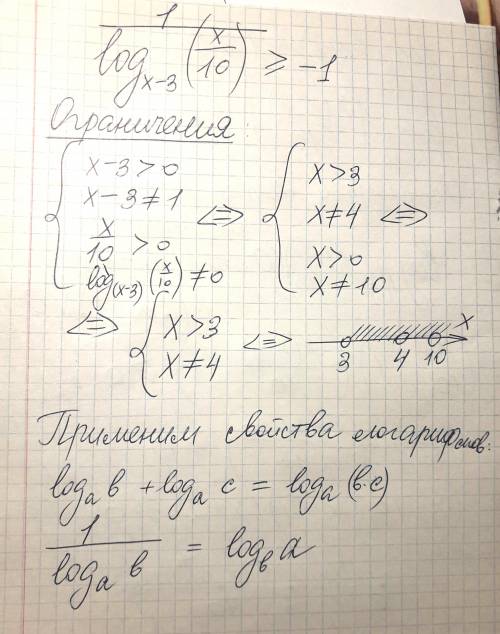 1/log_{x-3}(x/10) ≥ -1
Ограничения:
{ x-3>0
x-3≠1
x/10 >0
log_{(x-3)}(x/10) ≠0
⇔ { x>3
x≠4
x>0
x≠10 ⇔
⇔ { x>3
x≠4 ⇔ 3 4 10 x
Применим свойства логарифмов:
log_a b + log_a c = log_a (b·c)
1/log_a b = log_b a